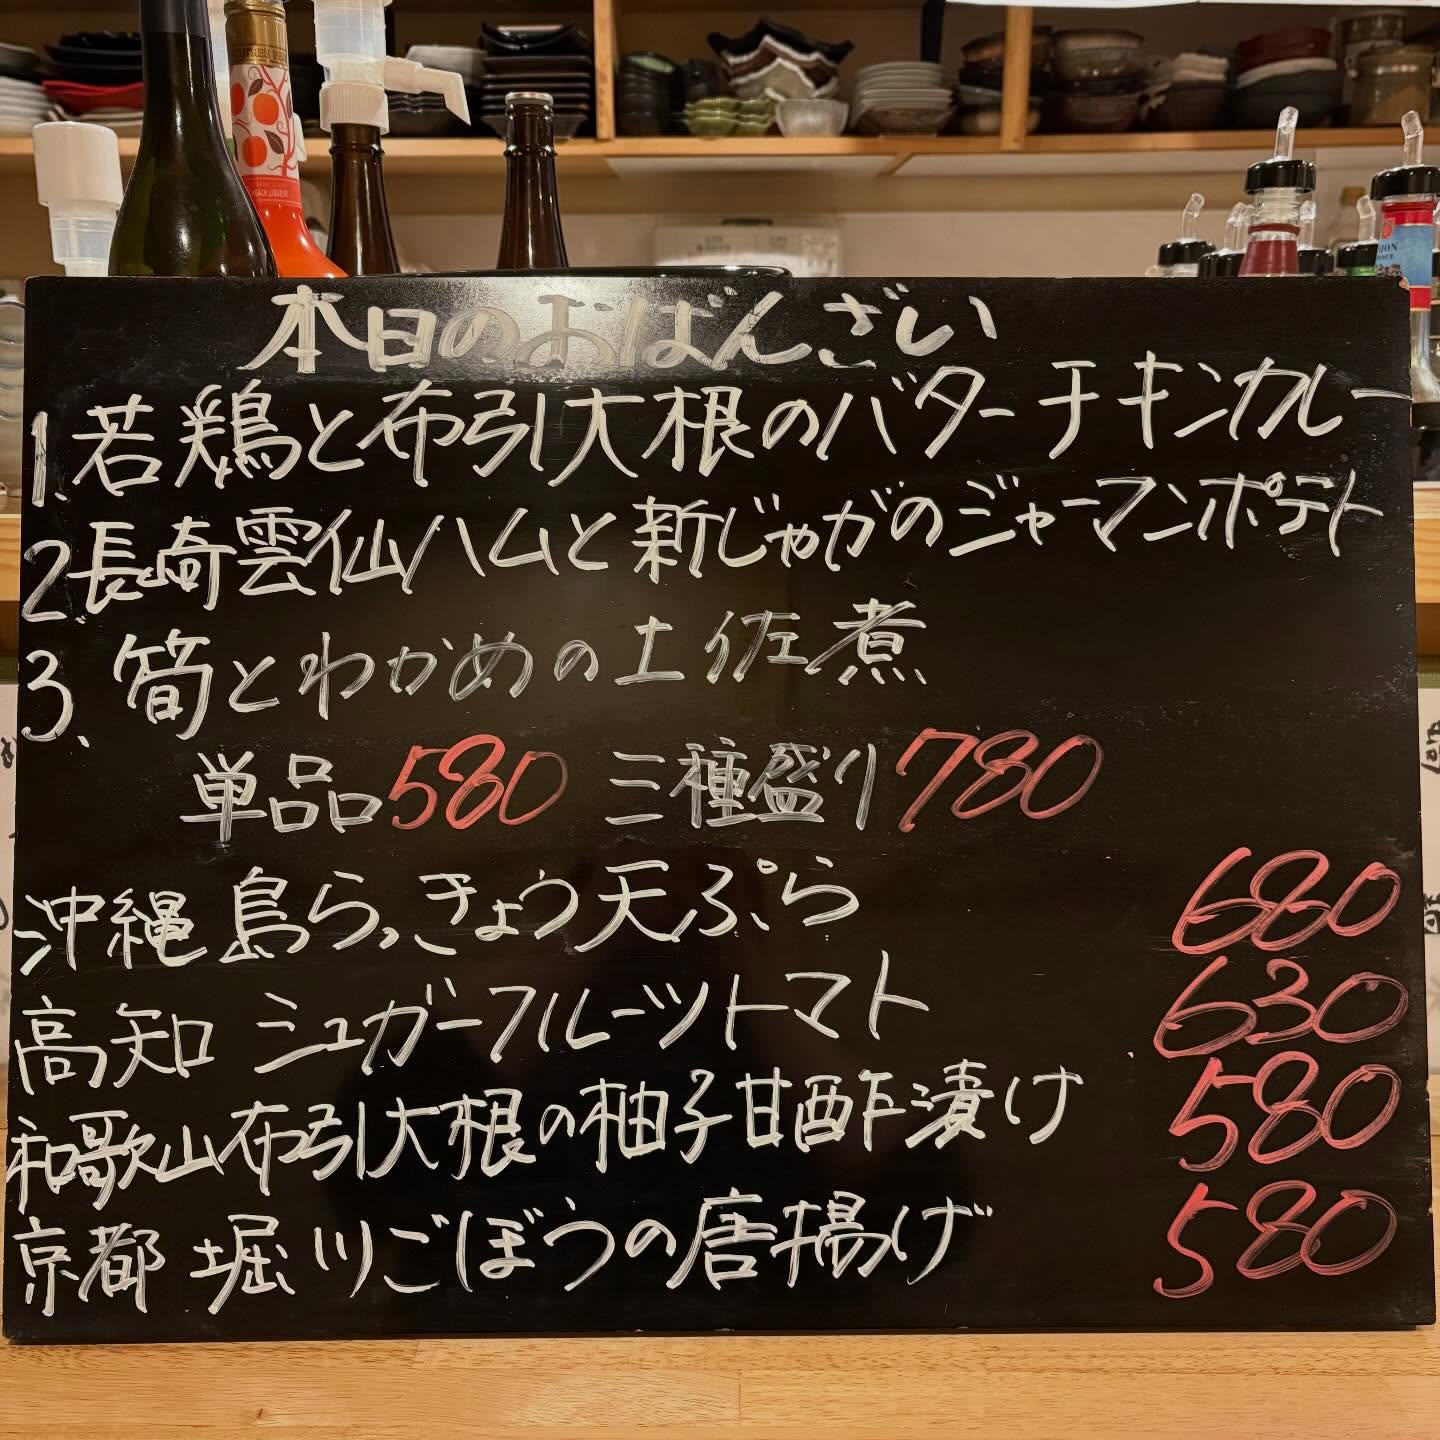 本日のおばんざい
1.若鶏と布引大根のバターチキンカレー
2.長崎雲仙ハムと新じゃがのジャーマンポテト
3、筍とわかめの土佐煮
単品580 三種盛り780
沖縄 島らっきょう天ぷら 680
高知 シュガーフルーツトマト 630
和歌山布引大根の柚子甘酢漬け 580
京都 堀川ごぼうの唐揚げ 580
PEACH LIQUEUR